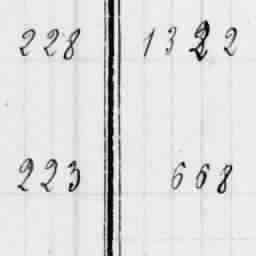 228 1322
223 668